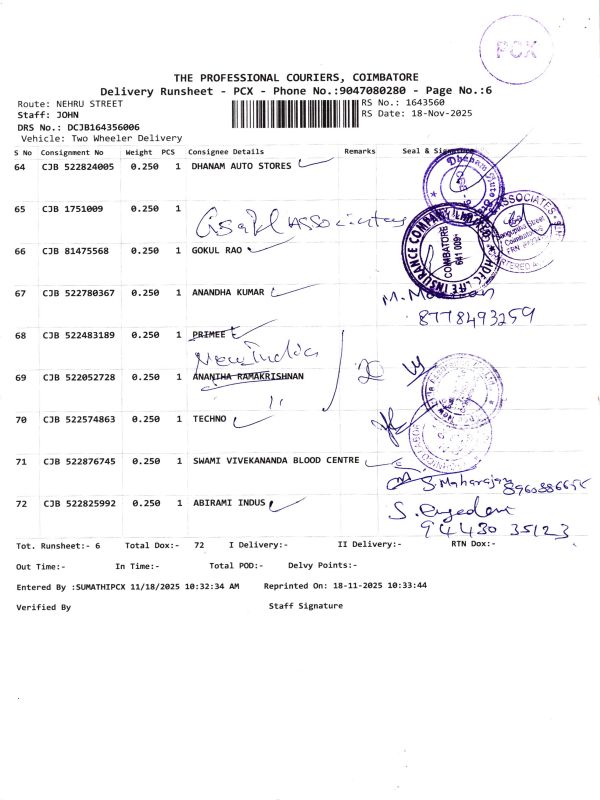 PCX
THE PROFESSIONAL COURIERS, COIMBATORE
Delivery Runsheet - PCX - Phone No.:9047080280 - Page No.:6
Route: NEHRU STREET
RS No.: 1643560
Staff: JOHN
RS Date: 18-Nov-2025
DRS No.: DCJB164356006
Vehicle: Two Wheeler Delivery
S No Consignment No Weight PCS Consignee Details Remarks Seal & Signature
64 CJB 522824005 0.250 1 DHANAM AUTO STORES
65 CJB 1751009 0.250 1
Associates
ASSOCIATES
Coimbatore
LIFE INSURANCE COMPANY LIMITED
COIMBATORE
641 009
66 CJB 81475568 0.250 1 GOKUL RAO
67 CJB 522780367 0.250 1 ANANDHA KUMAR
8778493259
68 CJB 522483189 0.250 1 PRIMEE
New India
69 CJB 522052728 0.250 1 ANANTHA RAMAKRISHNAN
70 CJB 522574863 0.250 1 TECHNO
71 CJB 522876745 0.250 1 SWAMI VIVEKANANDA BLOOD CENTRE
S. Maharajan
72 CJB 522825992 0.250 1 ABIRAMI INDUS
94430 35123
Tot. Runsheet:- 6 Total Dox:- 72 I Delivery:- II Delivery:- RTN Dox:-
Out Time:- In Time:- Total POD:- Delvy Points:-
Entered By :SUMATHIPCX 11/18/2025 10:32:34 AM Reprinted On: 18-11-2025 10:33:44
Verified By Staff Signature